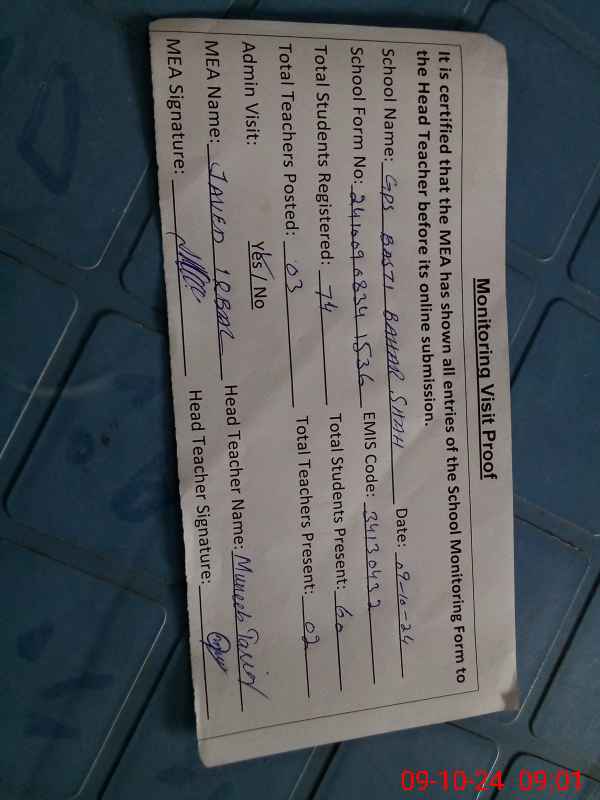 Monitoring Visit Proof
It is certified that the MEA has shown all entries of the School Monitoring Form to
the Head Teacher before its online submission.
School Name: GPS BASTI BAHAR SHAH Date: 09-10-24
School Form No: 24100908341536 EMIS Code: 34130432
Total Students Registered: 74 Total Students Present: 60
Total Teachers Posted: 03 Total Teachers Present: 02
Admin Visit: Yes / No
MEA Name: JAVED IQBAL Head Teacher Name: Muneeb Tariq
MEA Signature: Head Teacher Signature:
09-10-24 09:01